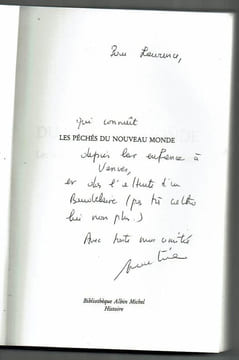 Pour Laurence,
qui connaît
LES PÉCHÉS DU NOUVEAU MONDE
depuis leur enfance à
Vanves,
et dès l'
Baudelaire (pas très catho
lui non plus.)
Avec toute mon amitié
Bibliothèque Albin Michel
Histoire